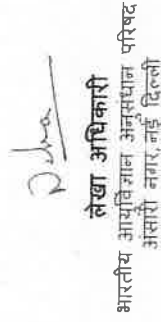 लेखा अधिकारी
भारतीय आयुर्विज्ञान अनुसंधान परिषद
अंसारी नगर, नई दिल्ली